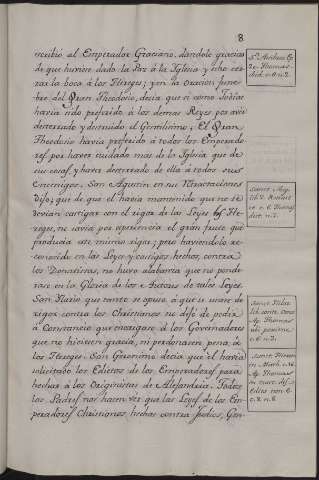 8
escribió al Emperador Graciano, dandole gracias
de que huviese dado la Paz à la Iglesia y echo cer-
rar la boca à los Hereges; y en la oracion fune-
bre del Gran Theodosio, decia que si como Tobias
havia sido preferido à los demas Reyes por aver
desterrado y destruido el Gentilismo; El Gran
Theodosio havia preferido à todos los Emperado-
res por haver cuidado mas de la Iglesia que de
sus cosas, y havia desterrado de ella à todos sus
Enemigos. San Agustin en sus Retractaciones
dijo; que de que el havia mantenido que no se
devian castigar con el rigor de las Leyes los He-
reges, no savia por experiencia el gran fruto que
producia este mismo rigor; pero haviendolo re-
conocido en las Leyes y castigos hechos contra
los Donatistas, no huvo alabanza que no pondè-
rase en la Gloria de los Autores de tales Leyes.
San Hilario que tanto se opuso à que se usase de
rigor contra los Christianos no dejó de pedir
à Constancio que encargase à los Governadores
que no hiciesen gracia, ni perdonasen pena, à
los Hereges. San Geronimo decia que el havia
solicitado los Edictos de los Emperadores para
hechar à los Origenistas de Alejandria. Todos
los Padres nos hacen ver que las Leyes de los Em-
peradores Christianos, hechas contra Judios, Gen-
Sn. Ambros.
Thomas.
n. 2.
Sanct. Aug.
lib. 2. Retract.
c. 6. Thomas.
n. 2.
Sanct. Hilar.
lib. cont. Cons.
Ap. Thomas.
ubi proxime
c. 6. n. 2.
Sanct. Hieron.
Ap. Thomas.
c. 2. n. 8.